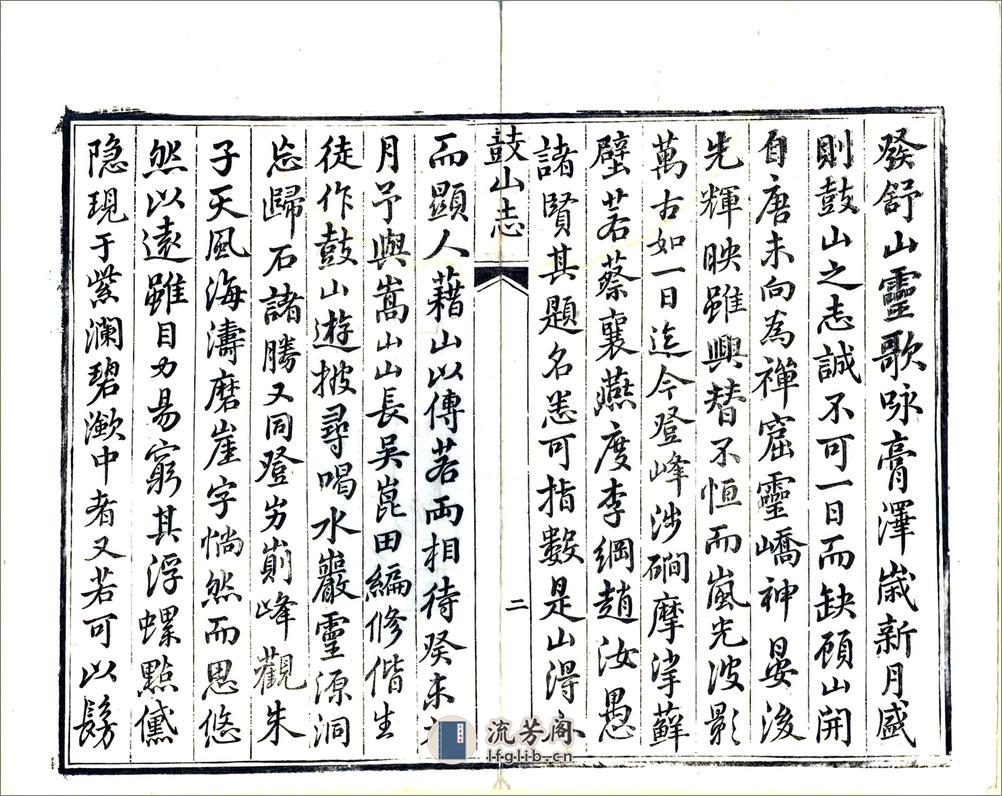 發舒山靈歌咏膏澤歲新月盛
則鼓山之志誠不可一日而缺顧山開
自唐末向為禪窟靈嶠神晏後
先輝映雖興替不恒而嵐光波影
萬古如一日迄今登峰涉磵摩挲蘚
壁若蔡襄燕度李綱趙汝愚
諸賢其題名悉可指數是山得
鼓山志
二
而顯人藉山以傳若兩相待癸未
月予與嵩山山長吳崑田編修偕生
徒作鼓山遊披尋喝水巖靈源洞
忘歸石諸勝又同登屴崱峰觀朱
子天風海濤磨崖字惝然而思悠
然以遠雖目力易窮其浮螺點黛
隐現于紫瀾碧潄中者又若可以髣
流芳阁
lfglib.cn